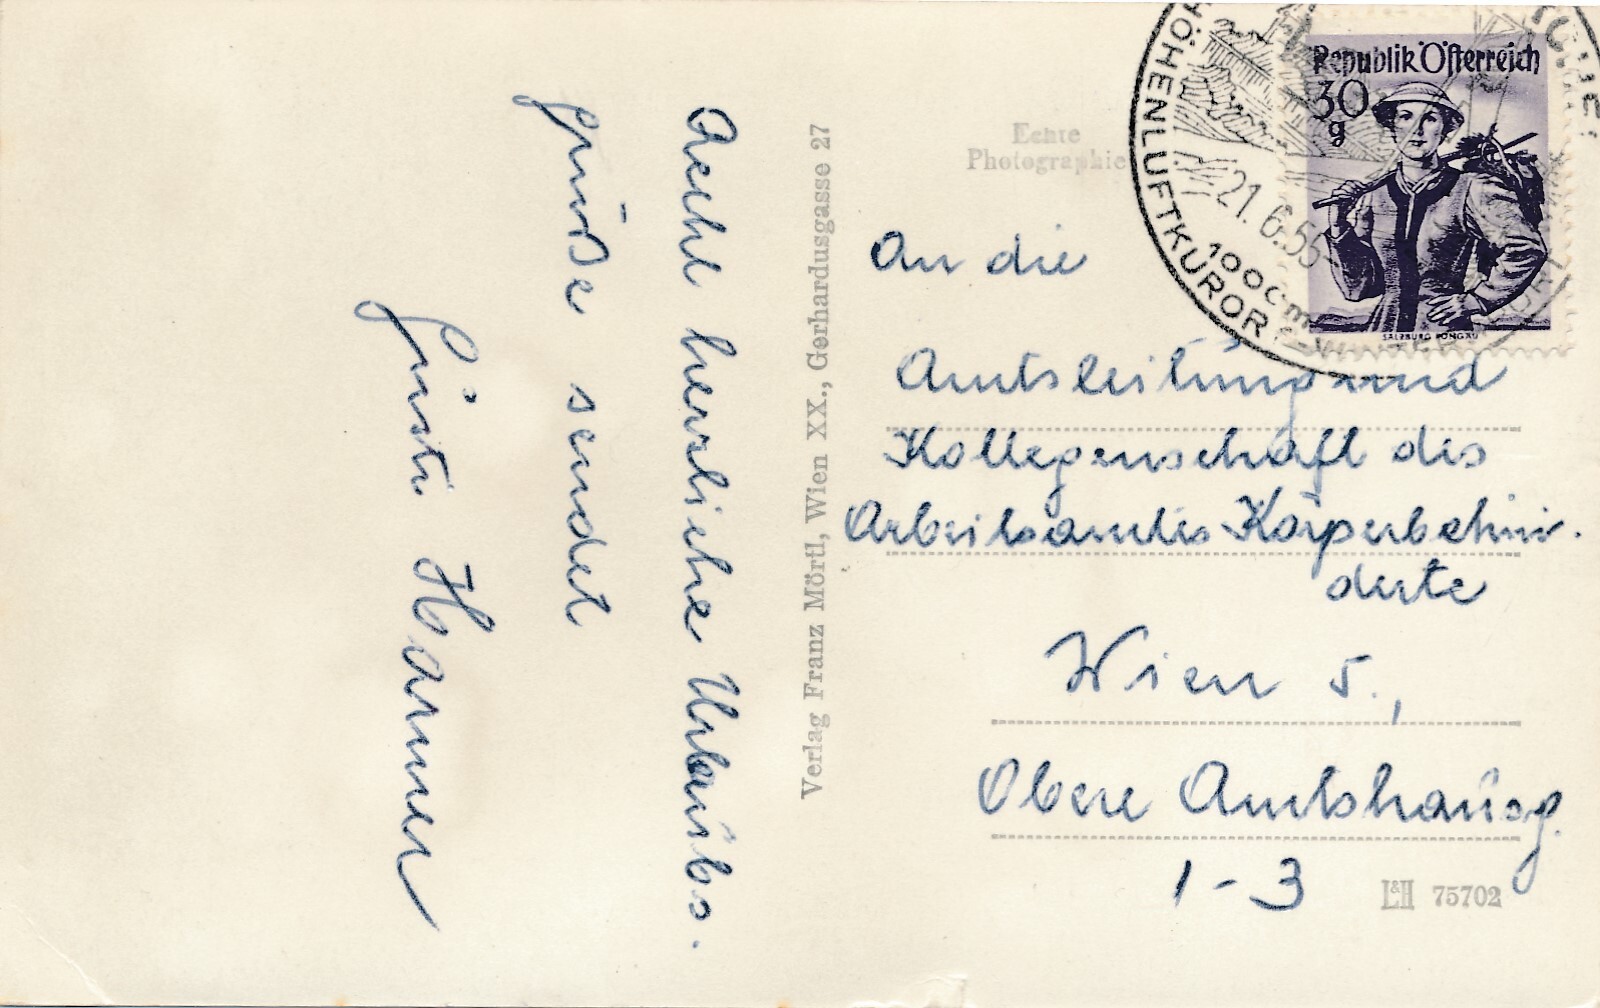 Recht herzliche Urlaubs-
grüße sendet
Gusti Hammer
Verlag Franz Mörtl, Wien XX., Gerhardusgasse 27
Echte
Photographie
Republik Österreich
30
g
SALZBURG PONGAU
HÖHENLUFTKURORT
1000 m
21.6.55
An die
Amtsleitung und
Kollegenschaft des
Arbeitsamtes Körperbehin-
derte
Wien 5.,
Obere Amtshausg.
1-3
L&H 75702